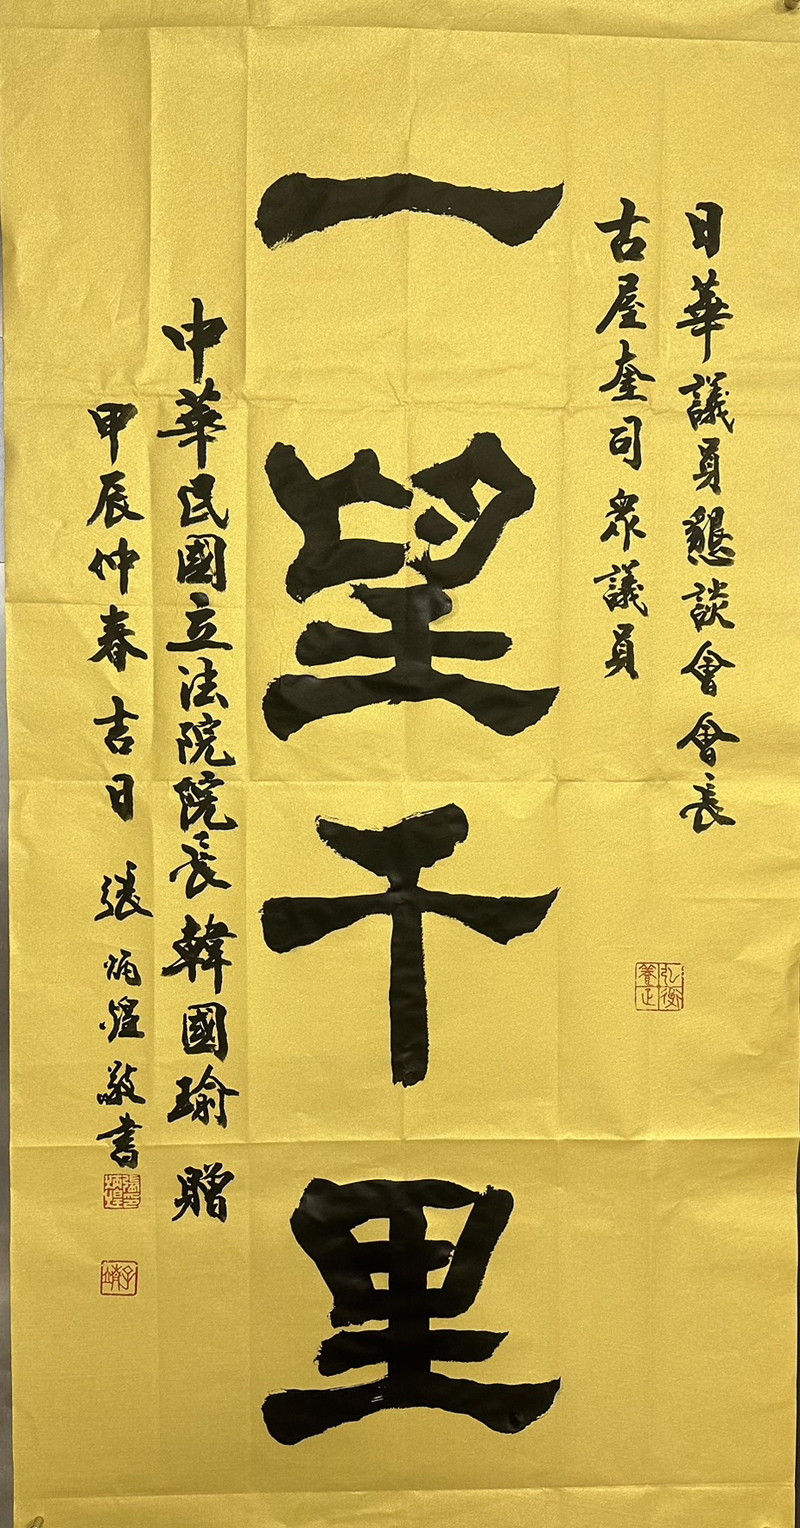 日華議員懇談會會長
古屋奎司眾議員
一望千里
中華民國立法院院長韓國瑜 贈
甲辰仲春吉日 張炳煌敬書
弘衡養正
張炳煌印